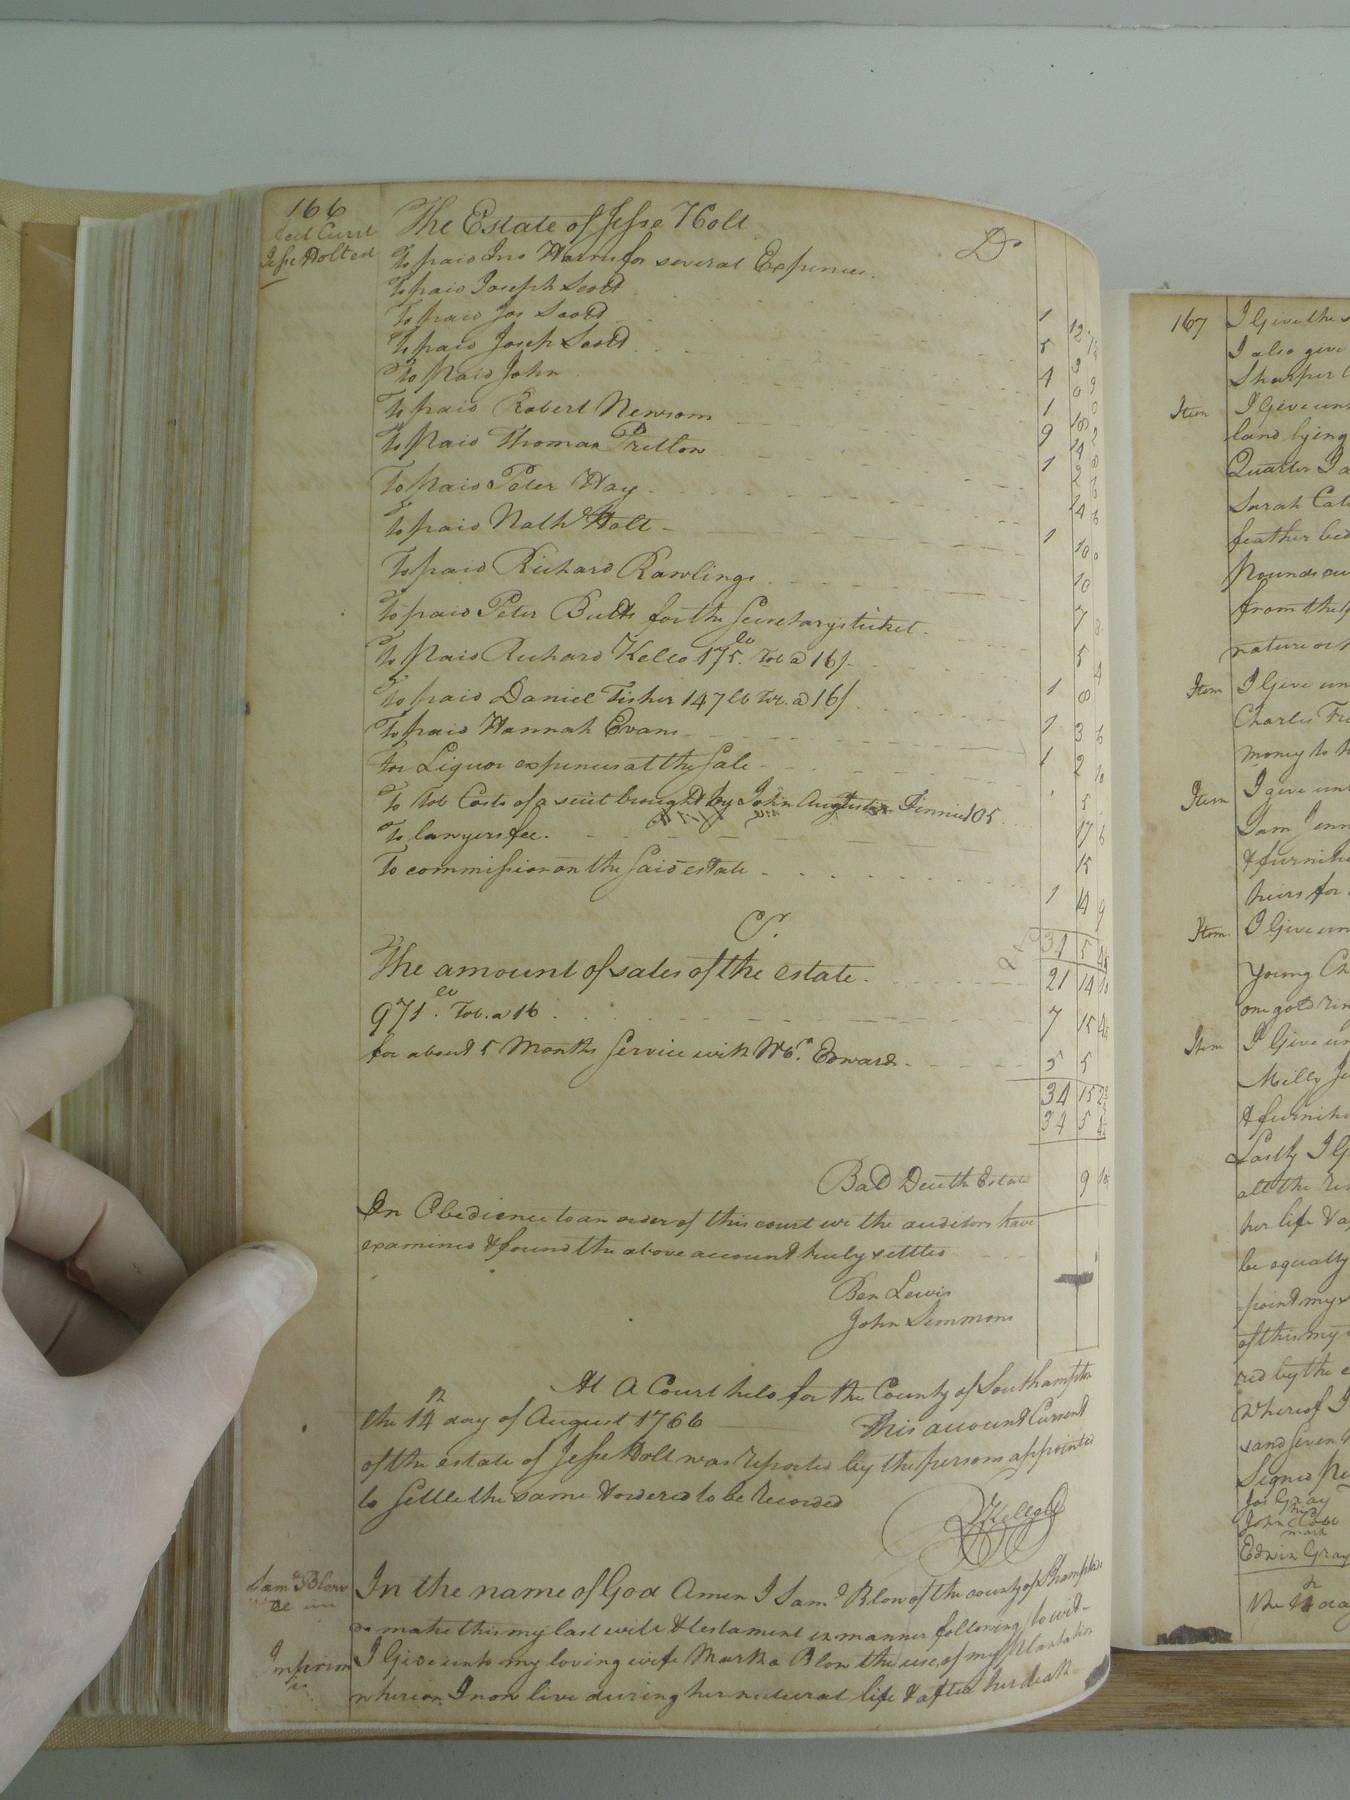 166
Acct Curt
Jesse Holt ed
The Estate of Jesse Holt Dr
To paid Jno Harris for several Expences
To paid Joseph Scott 1 12
To paid Jos Scott 5 3
To paid Joseph Scott 4 0
To paid John 1 18
To paid Robert Newsom 9 14
To paid Thomas Pretlow 1 2 6
To paid Peter Hay 14 6
To paid Nath Holt 1 10 0
To paid Richard Rawlings 10
To paid Peter Butts for the Secretarys ticket 7
To paid Richard Kello 175 lb Tob a 16/ 5 4
To paid Daniel Fisher 147 lb Tob. a 16/ 1 8
To paid Hannah Evans 1 3 6
for Liquor expences at the Sale 1 2 10
To Tob Costs of a suit brought by John Augustus Finnie 105 5
To lawyers fee 17 6
To commission on the Said estate 15
1 14 9
Cr.
34 5 4
The amount of sales of the estate 21 14 10
971 lb Tob. a 16 7 15 4
for about 5 Months Service with Edwards 5 5
34 15 2
34 5 4
Bal Due the Estate 9 10
In Obedience to an order of this court we the auditors have
examined & found the above account truly settled
Ben Lewis
John Simmons
At A Court held for the County of Southampton
the 14th day of August 1766 This account Current
of the estate of Jesse Holt was reported by the persons appointed
to Settle the same & ordered to be Recorded
R Kello
Saml Blow
In the name of God Amen I Saml Blow of the county of Shampton
do make this my last will & testament in manner following to wit
Imprimis
I Give unto my loving wife Martha Blow the use of my plantation
wherein I now live during her natural life & after her death
167
I Give the
I also give
Sharper
Item
I Give unto
land lying
Quarter I a
Sarah Cat
feather bed
Pounds cu
from the
nature or
Item
I Give un
Charles
money to
Item
I give un
Sam
& furnit
heirs for
Item
I Give un
Young Ch
one gold rin
Item
I Give un
Milly Je
& furnitu
Lastly I G
all the
her life & a
be equally
point my
of this my
red by the
Whereof I
sand seven
Signed
Jos Gray
his
John
mark
Edwin Gray
the da